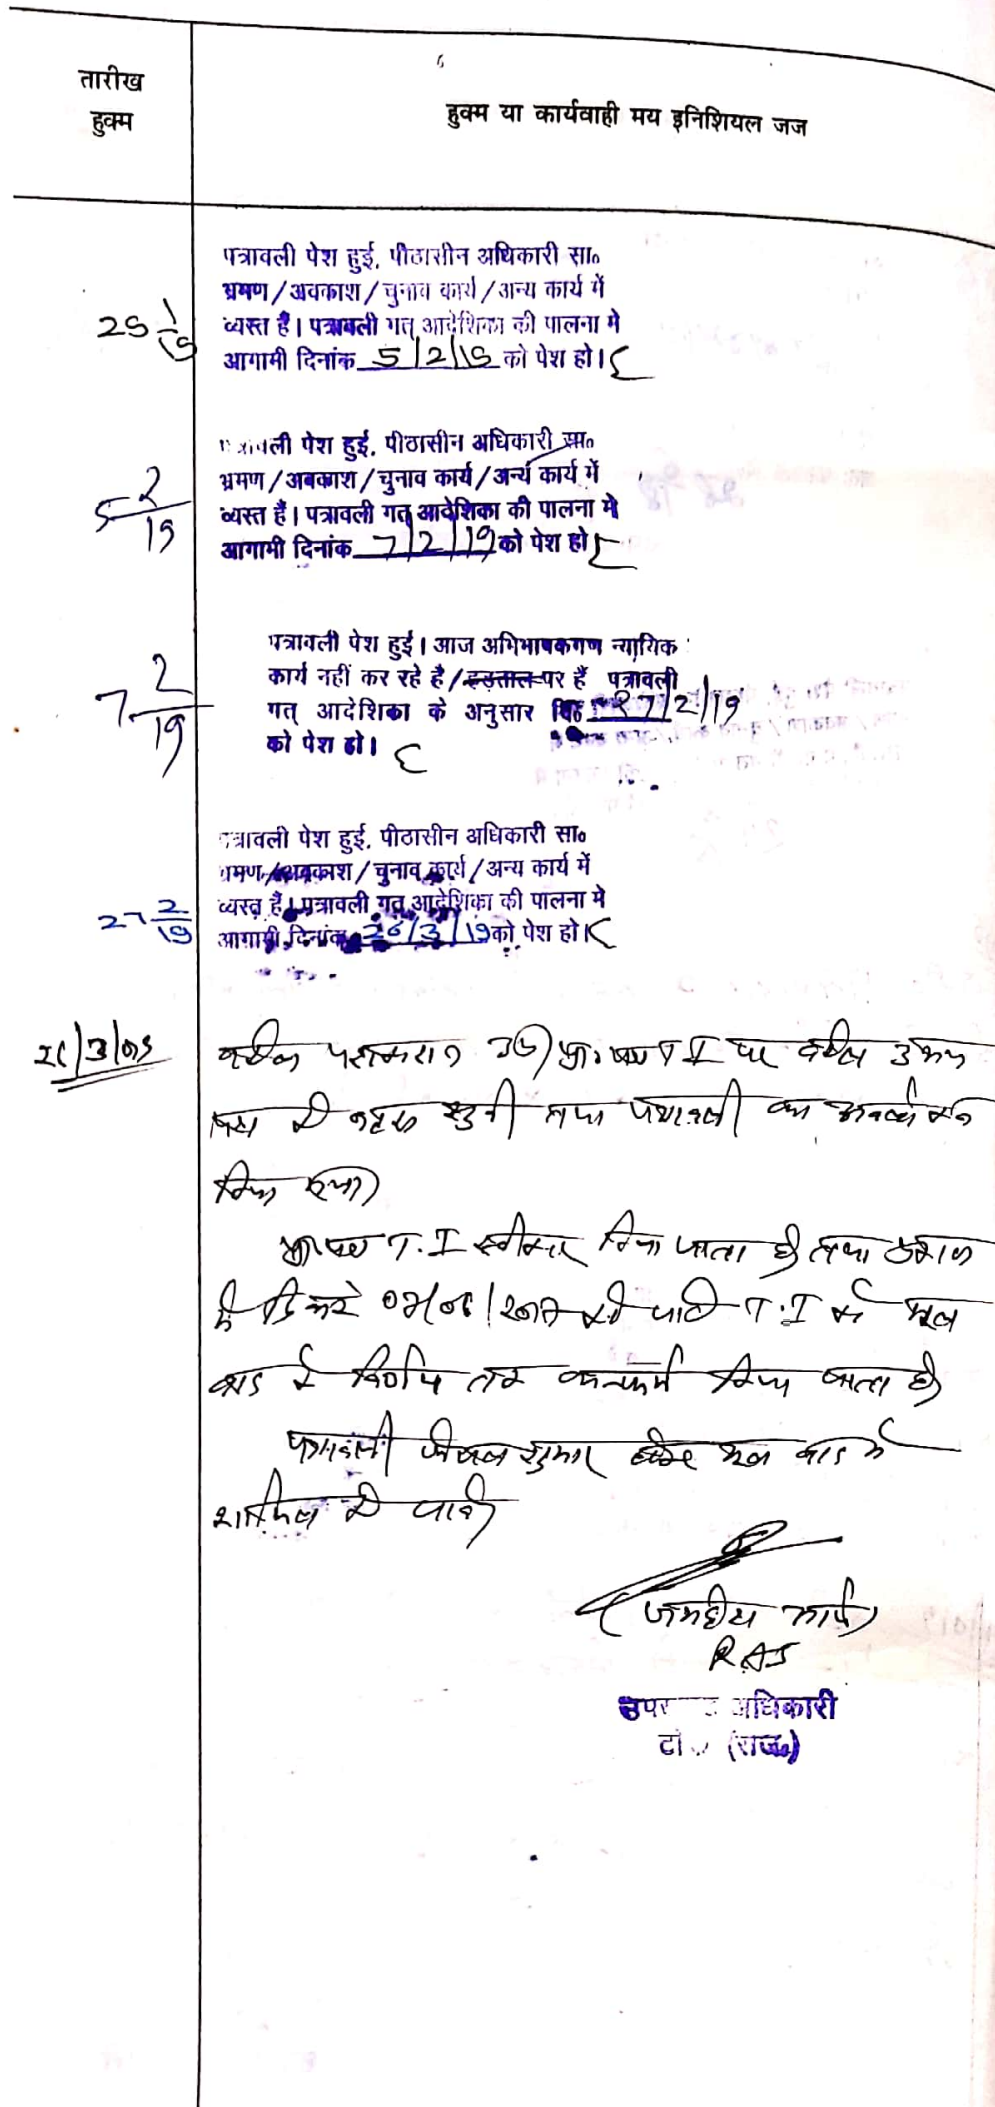 तारीख
हुक्म
हुक्म या कार्यवाही मय इनिशियल जज
पत्रावली पेश हुई, पीठासीन अधिकारी सा०
भ्रमण/अवकाश/चुनाव कार्य/अन्य कार्य में
व्यस्त हैं। पत्रावली गत् आदेशिका की पालना मे
आगामी दिनांक 5/2/19 को पेश हो।
5 2/19
पत्रावली पेश हुई, पीठासीन अधिकारी सा०
भ्रमण/अवकाश/चुनाव कार्य/अन्य कार्य में
व्यस्त हैं। पत्रावली गत् आदेशिका की पालना मे
आगामी दिनांक 7/2/19 को पेश हो
7 2/19
पत्रावली पेश हुई। आज अभिभाषकगण न्यायिक
कार्य नहीं कर रहे है/हड़ताल पर हैं पत्रावली
गत् आदेशिका के अनुसार 27/2/19
को पेश हो।
27 2/19
पत्रावली पेश हुई, पीठासीन अधिकारी सा०
भ्रमण/अवकाश/चुनाव कार्य/अन्य कार्य में
व्यस्त हैं। पत्रावली गत् आदेशिका की पालना मे
आगामी दिनांक 26/3/19 को पेश हो।
वकील उप० T.I पर वकील उभय
पक्ष की बहस सुनी तथा पत्रावली का अवलोकन
किया गया।
T.I स्वीकार किया जाता है तथा
की T.I को मूल
वाद के निर्णय तक कन्फर्म किया जाता है।
पत्रावली फैसल शुमार होकर मूल वाद में
शामिल की जावे।
RAS
अधिकारी
(राज०)